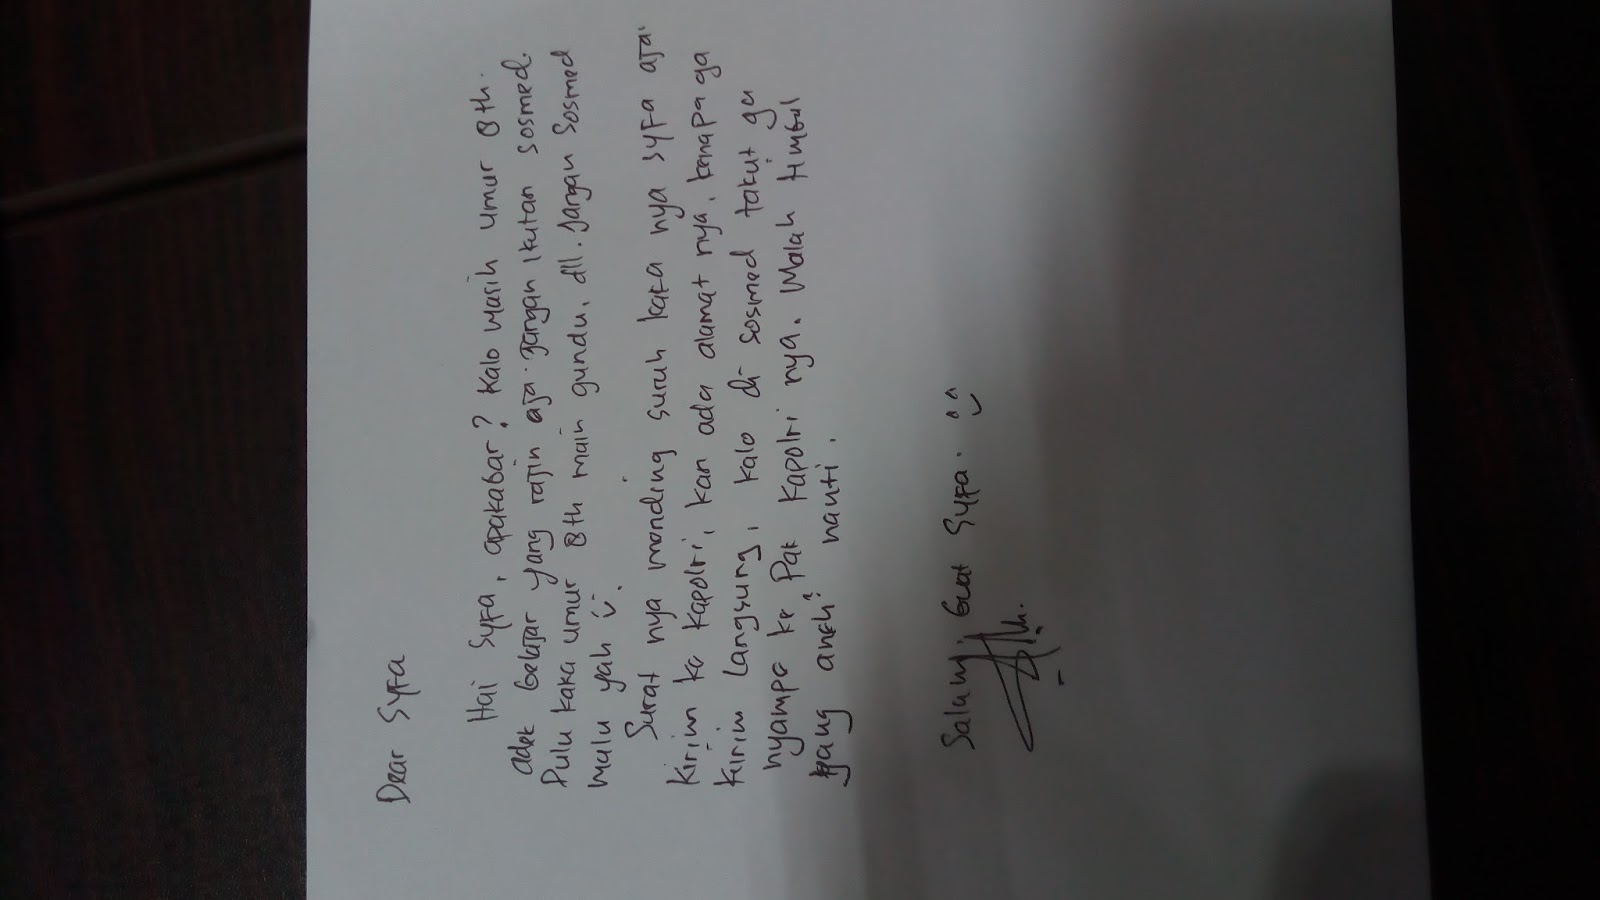 Dear Syfa
Hai Syfa, apakabar? Kalo masih umur 8th.
adek belajar yang rajin aja. Jangan ikutan sosmed.
Dulu kaka umur 8th main gundu, dll. Jangan Sosmed
mulu yah
Surat nya mending suruh kaka nya syfa aja
Kirim ke Kapolri, kan ada alamat nya, kenapa ga
kirim langsung, kalo di sosmed takut ga
nyampe ke Pak Kapolri nya. Malah timbul
yang aneh² nanti.
Salam, buat Syfa.